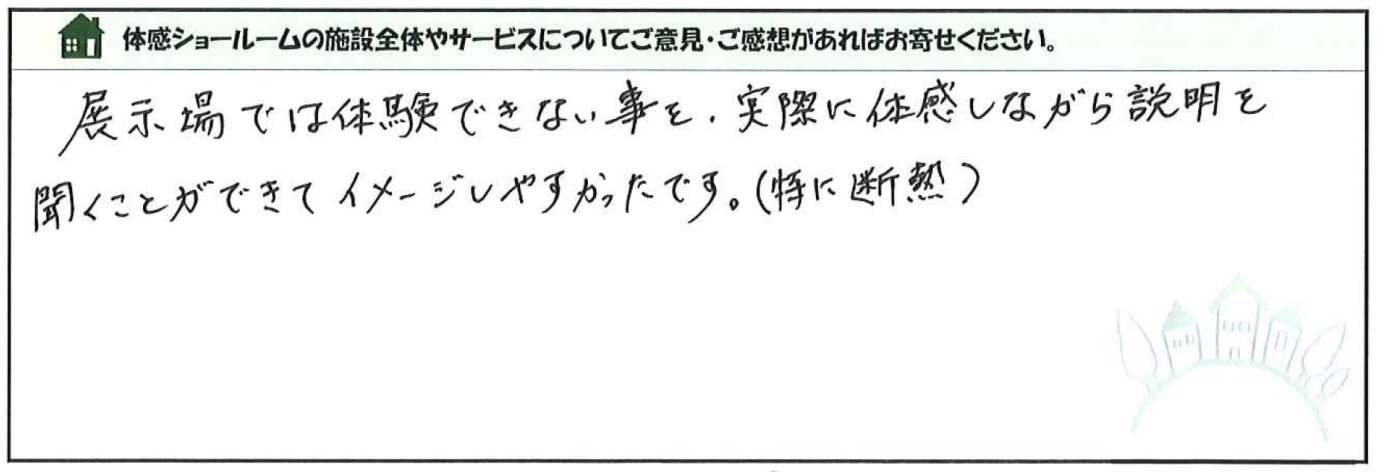 体感ショールームの施設全体やサービスについてご意見・ご感想があればお寄せください。
展示場では体験できない事を、実際に体感しながら説明を
聞くことができてイメージしやすかったです。(特に断熱)